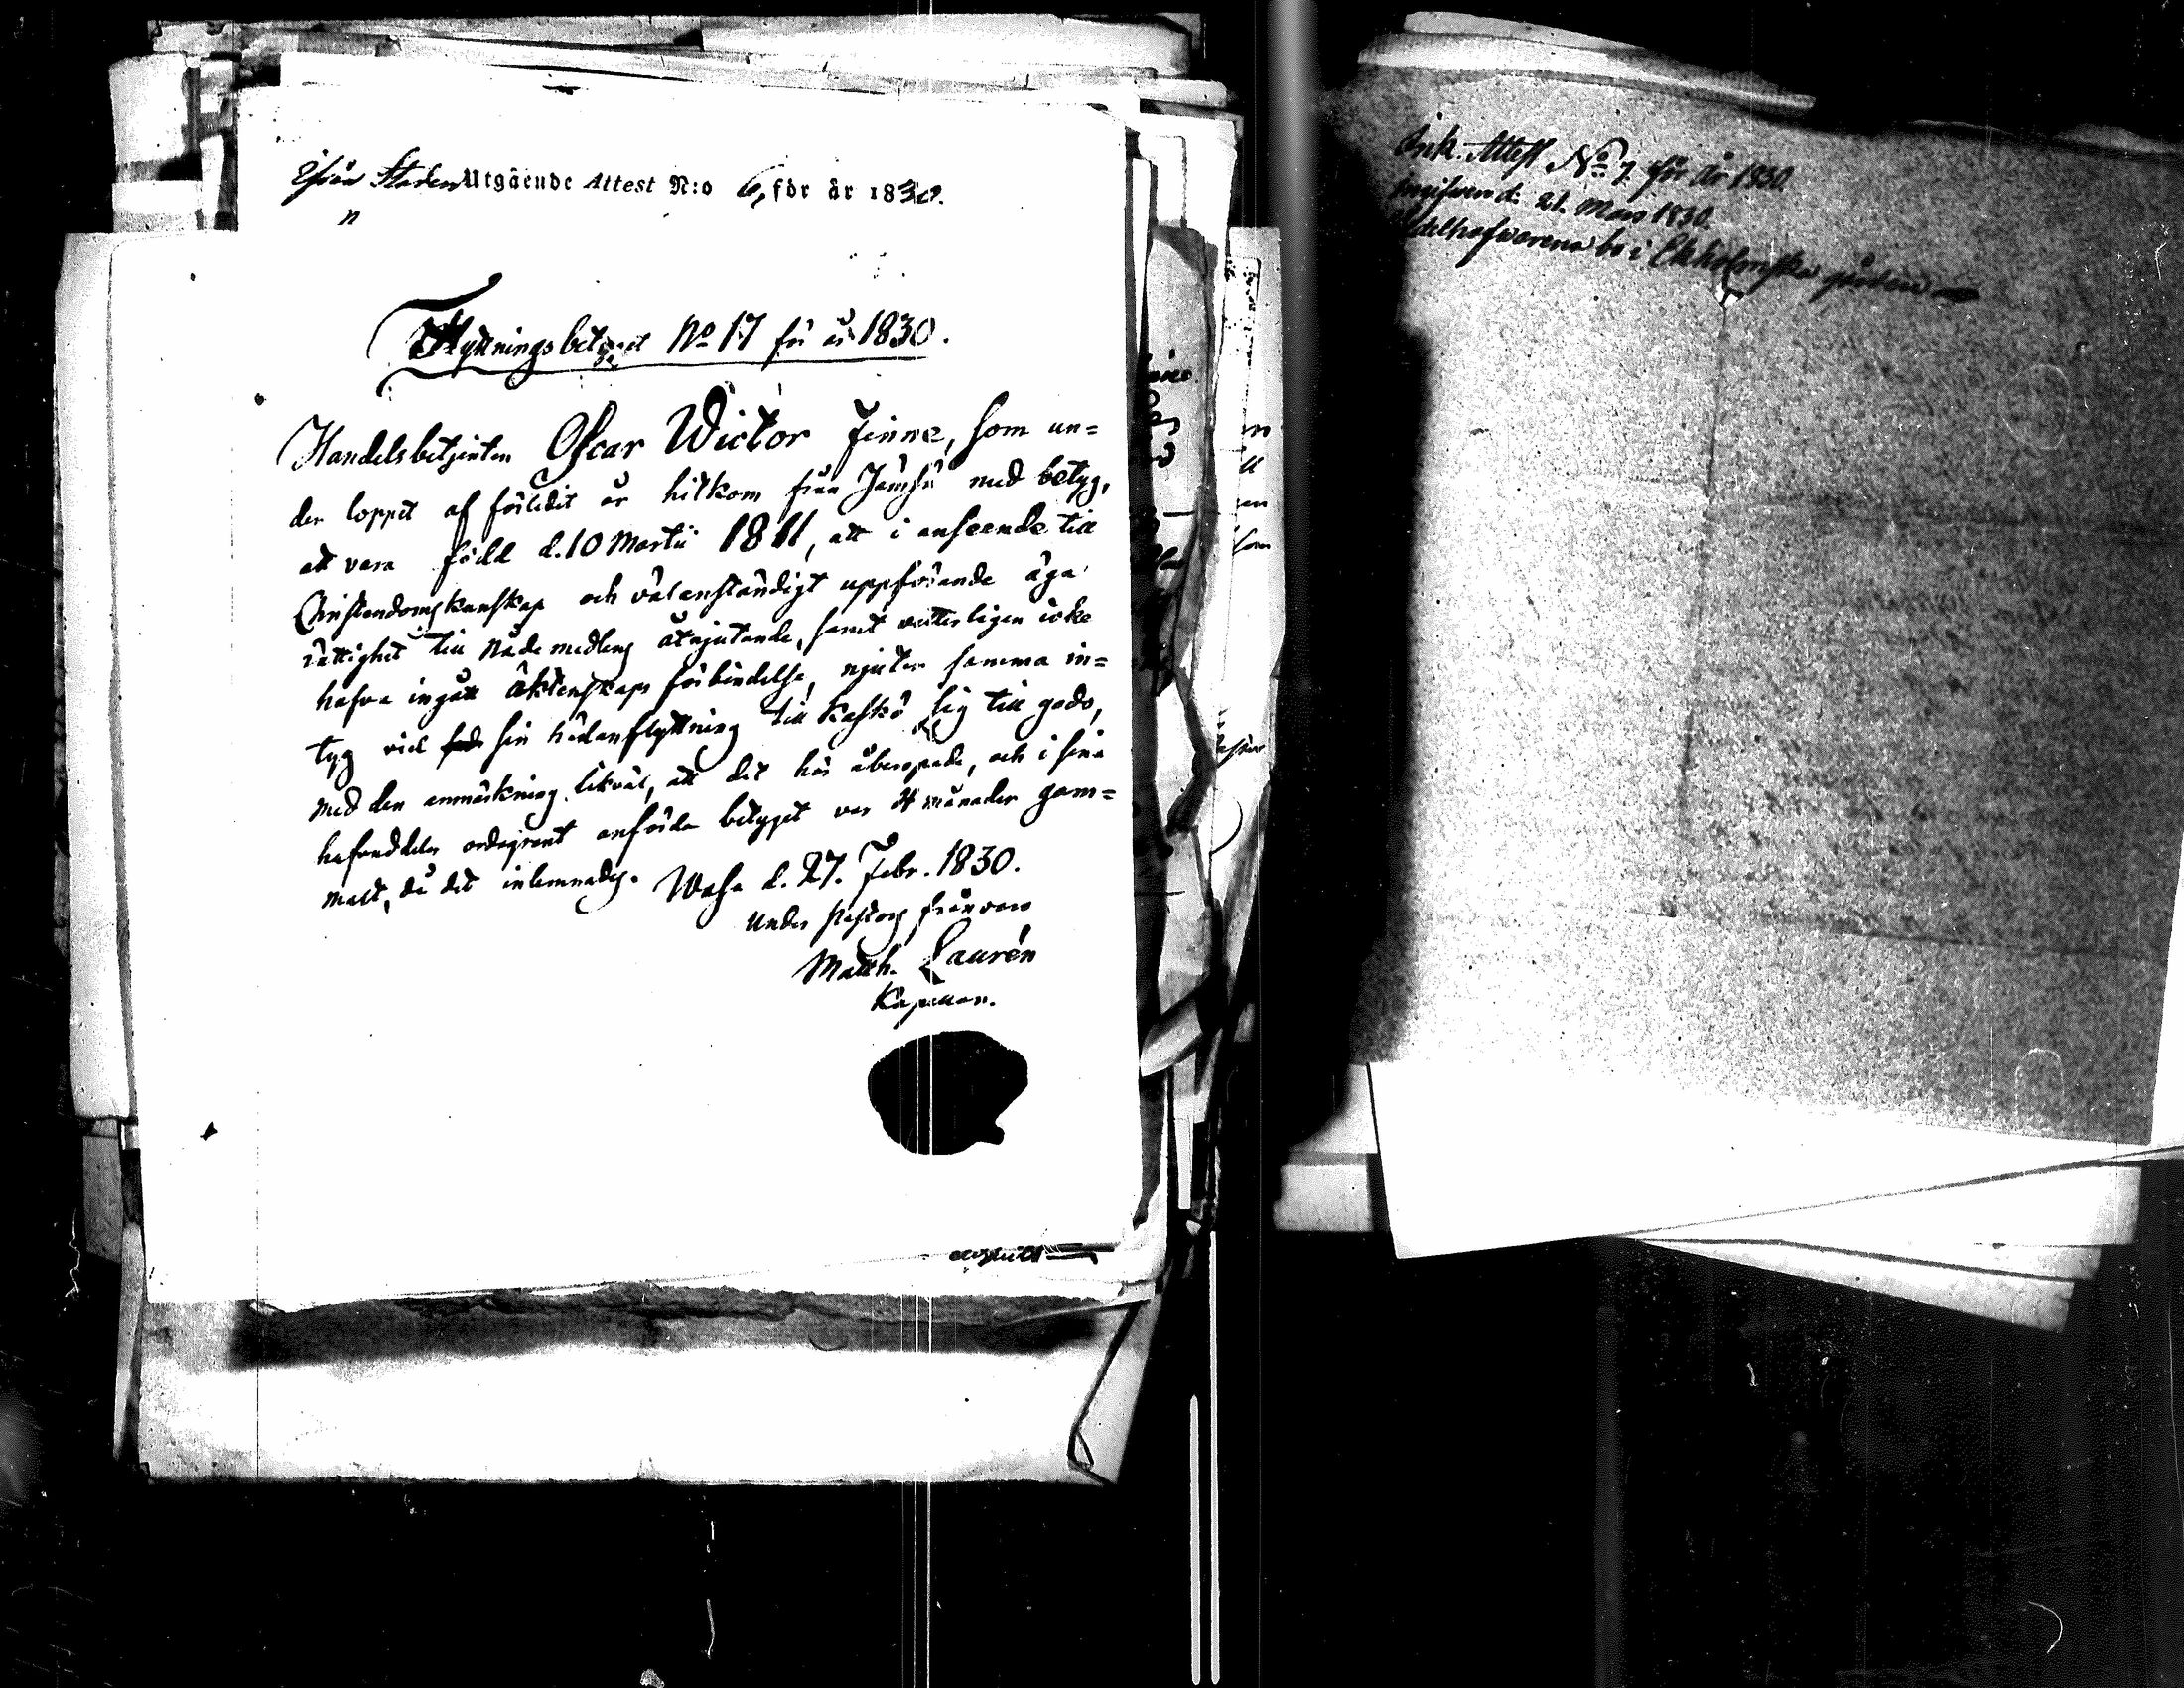 ifrån Staden Utgående Attest N:o 6, för år 1830.
n
Flyttningsbetyget No 17 för år 1830.
Handelsbetjenten Oscar Wictor Finne, som un=
der loppet af förledit år hitkom från Jämsä med betyg,
att vara född d. 10 Martii 1811, att i anseende till
Christendomskunskap och välanständigt uppförande äga
rättighet till Nådemedlens åtnjutande, samt vetterligen icke
hafva ingått äktenskaps förbindelse, njuter samma in=
tyg vid sin hädanflyttning till Kaskö sig till godo,
med den anmärkning likväl, att det här åberopade, och i sina
hufvuddelar ordagrant anförda betyget var 4 månader gam=
malt, då det inlemnades. Wasa d. 27. Febr. 1830.
Under Pastors frånvaro
Matth. Laurén
Kapellan.
Ink. Attest No 7 för år 1830.
d. 21. Mars 1830.
bo i Ekholmska gården